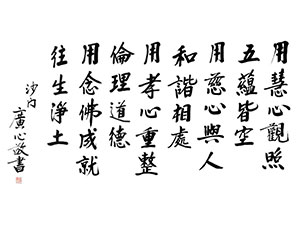 用慧心觀照
五蘊皆空
用慈心與人
和諧相處
用孝心重整
倫理道德
用念佛成就
往生淨土
沙內
廣心敬書